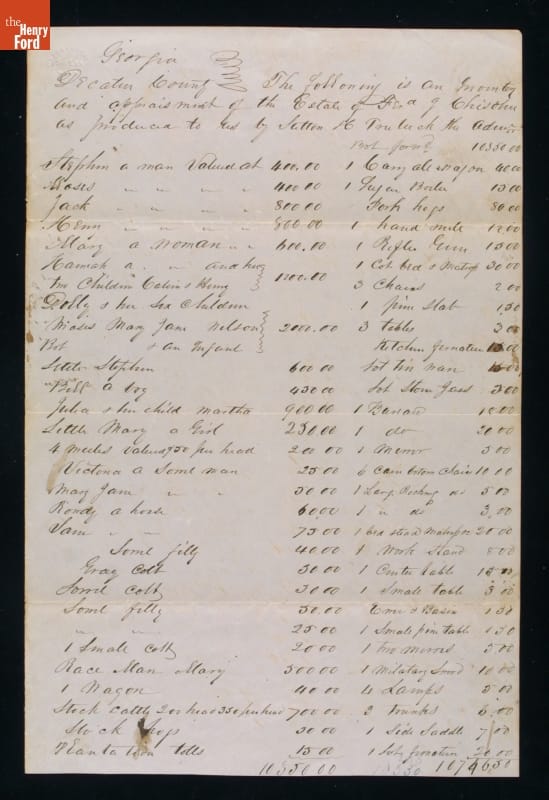 the
Henry
Ford
Georgia
Decatur County The following is an Inventory
and appraisment of the Estate of
as produced to us by Sutton H Truluck the Admr
Bot forwd 10350.00
Stephen a man Valued at 400.00
Moses " " " " 400.00
Jack " " " " 800.00
Henry " " " " 800.00
Mary a woman " " 600.00
Hannah a " " and her
two Children Calvin & Henry 1200.00
Dolly & her Six Children
Moses Mary Jane Nelson 2000.00
Bob & an Infant
Little Stephen 600.00
Bill a boy 450.00
Julia & her child martha 900.00
Little Mary a Girl 250.00
4 meules valued $50 per head 200.00
Victoria a Some man 25.00
Mary Jane " " 50.00
Rondy a horse 60.00
Sam " " 75.00
Some filly 40.00
Gray Colt 30.00
Sorrel colt 30.00
Some filly 50.00
" " 25.00
1 Small colt 20.00
Race Man Mary 500.00
1 Wagon 40.00
Stock cattle 200 head 350 per head 700.00
Stock hogs 30.00
Plantation tolls 15.00
10350.00
1 Carry all wagon 40.00
1 Sugar Boiler 15.00
Pork hogs 80.00
1 hand mill 12.00
1 Rifle Gun 15.00
1 Cot bed & Matrss 30.00
3 Chairs 2.00
1 pine Slab 1.50
3 tables 3.00
Kitchen furnature 15.00
Lot tin man 15.00
Lot Stone Jars 3.00
1 Bureau 10.00
1 do 20.00
1 Mirror 5.00
6 Cane bottom Chairs 10.00
1 Larg Rocking do 5.00
1 " do 3.00
1 bed stead Matrass 20.00
1 Work Stand 8.00
1 Center table 15.00
1 Small table 3.00
Ewer & Basin 1.50
1 Small pine table 1.50
1 two mirrors 5.00
1 Military Sword 10.00
4 Lamps 5.00
2 trunks 6.00
1 Side Saddle 7.00
1 furnature 20.00
10746.50